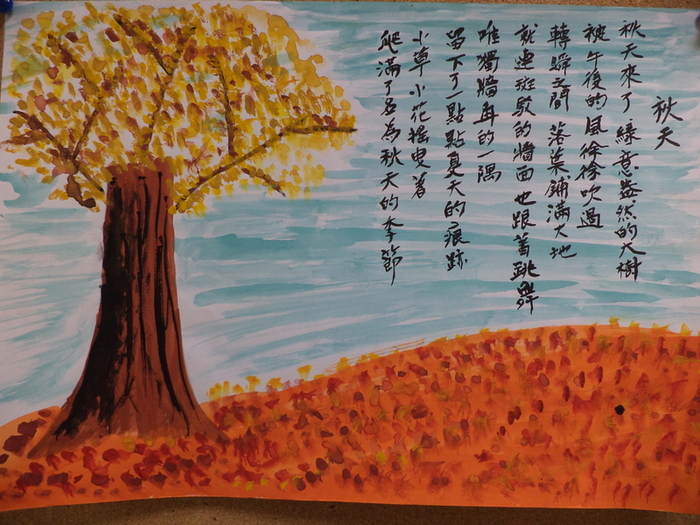 秋天
秋天來了 綠意盎然的大樹
被午後的風徐徐吹過
轉瞬間 落葉鋪滿大地
就連斑駁的牆面也跟著跳舞
唯獨牆角的一隅
留下了一點點夏天的痕跡
小草小花搖曳著
爬滿了名為秋天的季節